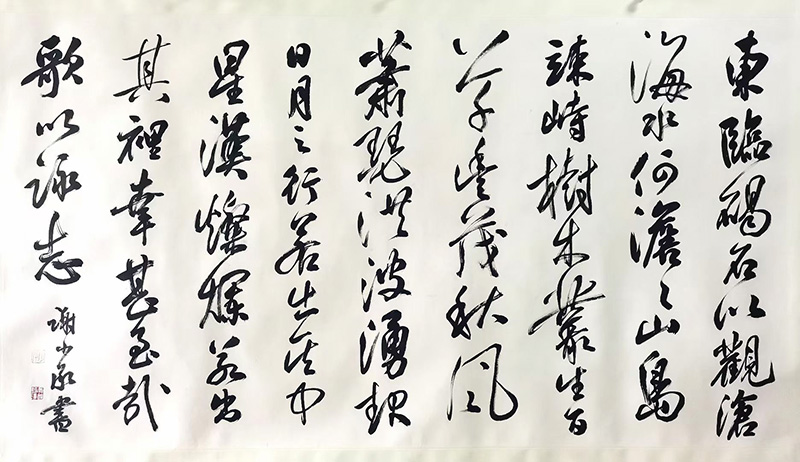 東臨碣石以觀滄
海水何澹々山島
竦峙樹木叢生百
草豐茂秋風
蕭瑟洪波湧起
日月之行若出其中
星漢燦爛若出
其裡幸甚至哉
歌以詠志
謝少書